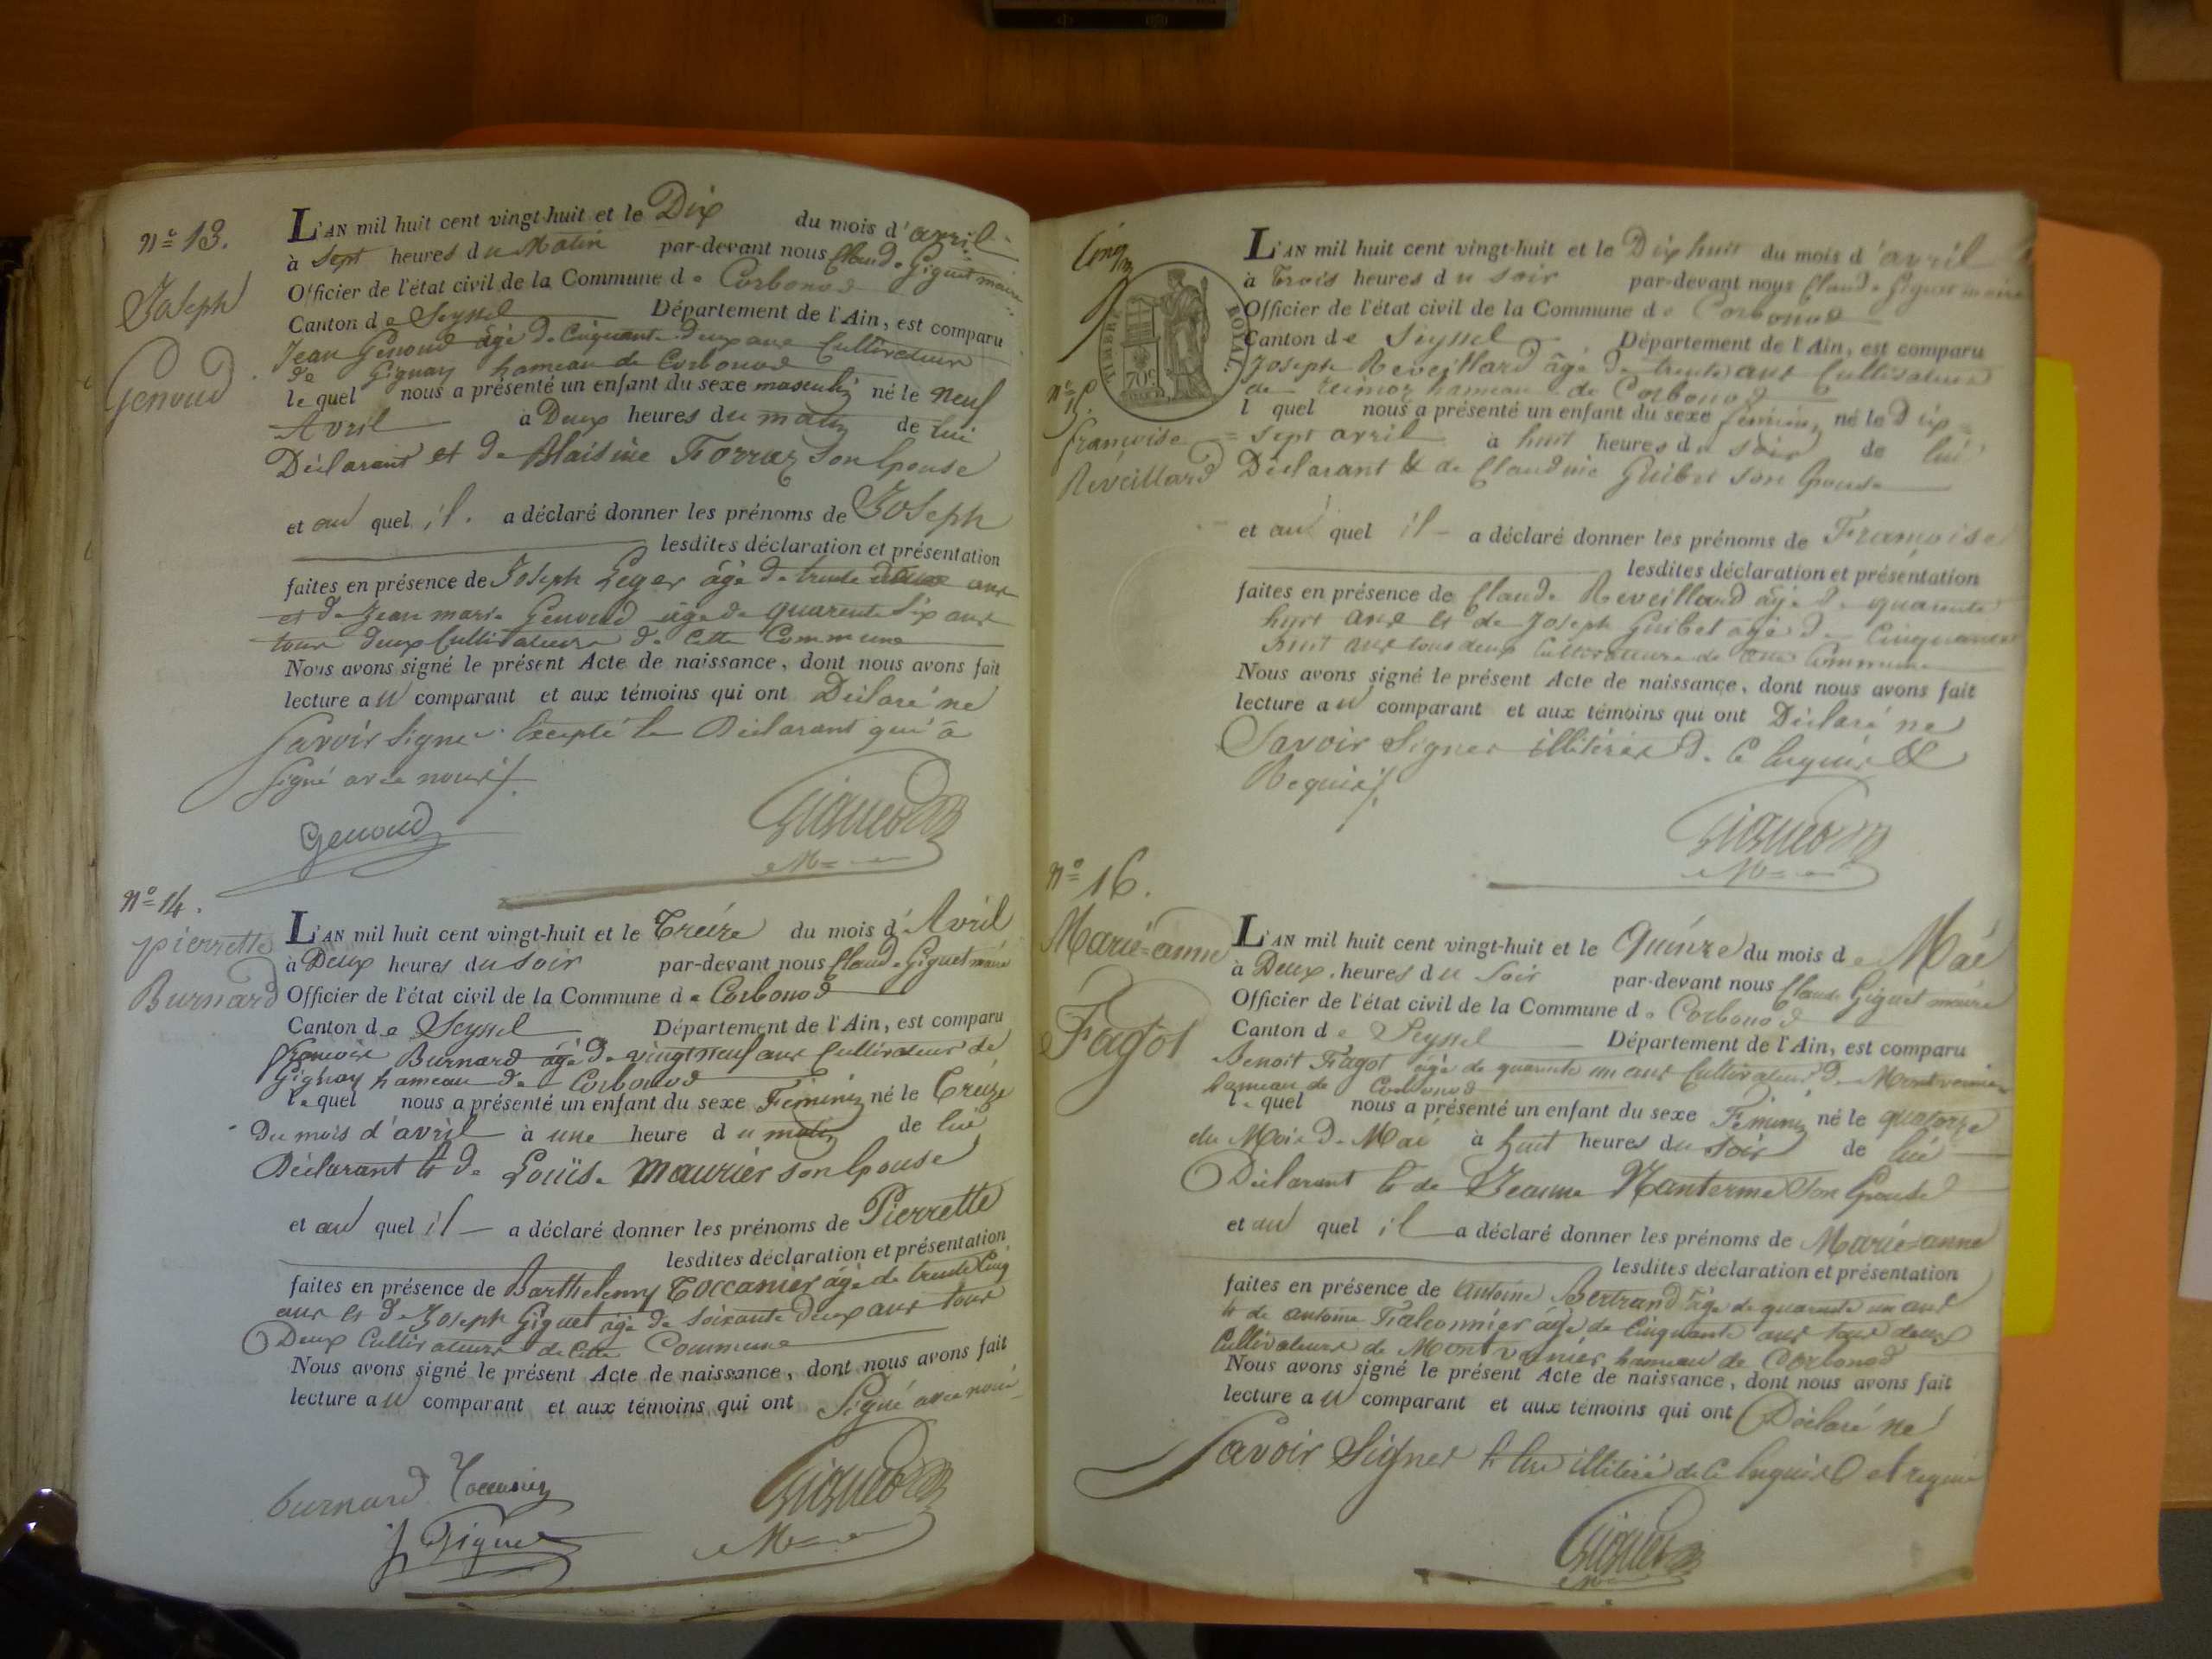 N° 13.
Joseph
Genoud
L'AN mil huit cent vingt-huit et le Dix du mois d'avril
à sept heures du Matin par-devant nous Claude Giguet maire
Officier de l'état civil de la Commune de Corbonod
Canton de Seyssel Département de l'Ain, est comparu
Jean Genoud âgé de cinquante deux ans Cultivateur
de Gignay hameau de Corbonod
lequel nous a présenté un enfant du sexe masculin né le neuf
Avril à Deux heures du matin de lui
Déclarant et de Blaisine Forraz son Epouse
et au quel il a déclaré donner les prénoms de Joseph
lesdites déclaration et présentation
faites en présence de Joseph Leger âgé de trente deux ans
et de Jean marie Genoud âgé de quarente six ans
tous deux Cultivateurs de cette Commune
Nous avons signé le présent Acte de naissance, dont nous avons fait
lecture au comparant et aux témoins qui ont Déclaré ne
savoir signer Excepté le Déclarant qui a
signé avec nous
Genoud Giguet
M
N° 14.
pierrette
Burnard
L'AN mil huit cent vingt-huit et le Treize du mois d'Avril
à Deux heures du soir par-devant nous Claude Giguet maire
Officier de l'état civil de la Commune de Corbonod
Canton de Seyssel Département de l'Ain, est comparu
françois Burnard âgé de vingt neuf ans Cultivateur de
Gignay hameau de Corbonod
lequel nous a présenté un enfant du sexe Féminin né le Treize
du mois d'avril à une heure du matin de lui
Déclarant & de Louise Maurier son Epouse
et au quel il a déclaré donner les prénoms de Pierrette
lesdites déclaration et présentation
faites en présence de Barthelemy Toccanier âgé de trente cinq
ans & de Joseph Giguet âgé de soixante deux ans tous
Deux Cultivateurs de cette Commune
Nous avons signé le présent Acte de naissance, dont nous avons fait
lecture au comparant et aux témoins qui ont Signé avec nous
burnard Toccanier Giguet
J Giguet M
Cinq
TIMBRE ROYAL
70c
N° 15.
françoise
Réveillard
L'AN mil huit cent vingt-huit et le Dix huit du mois d'avril
à Trois heures du soir par-devant nous Claude Giguet maire
Officier de l'état civil de la Commune de Corbonod
Canton de Seyssel Département de l'Ain, est comparu
Joseph Reveillard âgé de trente ans Cultivateur
de hameau de Corbonod
l quel nous a présenté un enfant du sexe féminin né le dix=
=sept avril à huit heures du soir de lui
Déclarant & de Claudine Guibet son Epouse
et au quel il a déclaré donner les prénoms de Françoise
lesdites déclaration et présentation
faites en présence de Claude Reveillard âgé de quarante
huit ans & de Joseph Guibet âgé de Cinquante
huit ans tous deux Cultivateurs de cette Commune
Nous avons signé le présent Acte de naissance, dont nous avons fait
lecture au comparant et aux témoins qui ont Déclaré ne
Savoir Signer illitérés de ce Enquis &
Requis
Giguet
M
N° 16.
Marié=anne
Fagot
L'AN mil huit cent vingt-huit et le Quinze du mois de Mai
à Deux heures du soir par-devant nous Claude Giguet maire
Officier de l'état civil de la Commune de Corbonod
Canton de Seyssel Département de l'Ain, est comparu
Benoit Fagot âgé de quarante un ans Cultivateur de
hameau de Corbonod
le quel nous a présenté un enfant du sexe Féminin né le quatorze
du Mois de Mai à huit heures du soir de lui
Déclarant & de Jeanne Manterme son Epouse
et au quel il a déclaré donner les prénoms de Marié=anne
lesdites déclaration et présentation
faites en présence de Antoine Bertrand âgé de quarante un ans
& de antoine Falconnier âgé de Cinquante ans tous deux
Cultivateurs de hameau de Corbonod
Nous avons signé le présent Acte de naissance, dont nous avons fait
lecture au comparant et aux témoins qui ont Déclaré ne
savoir Signer illitéré de ce Enquis et requis
Giguet